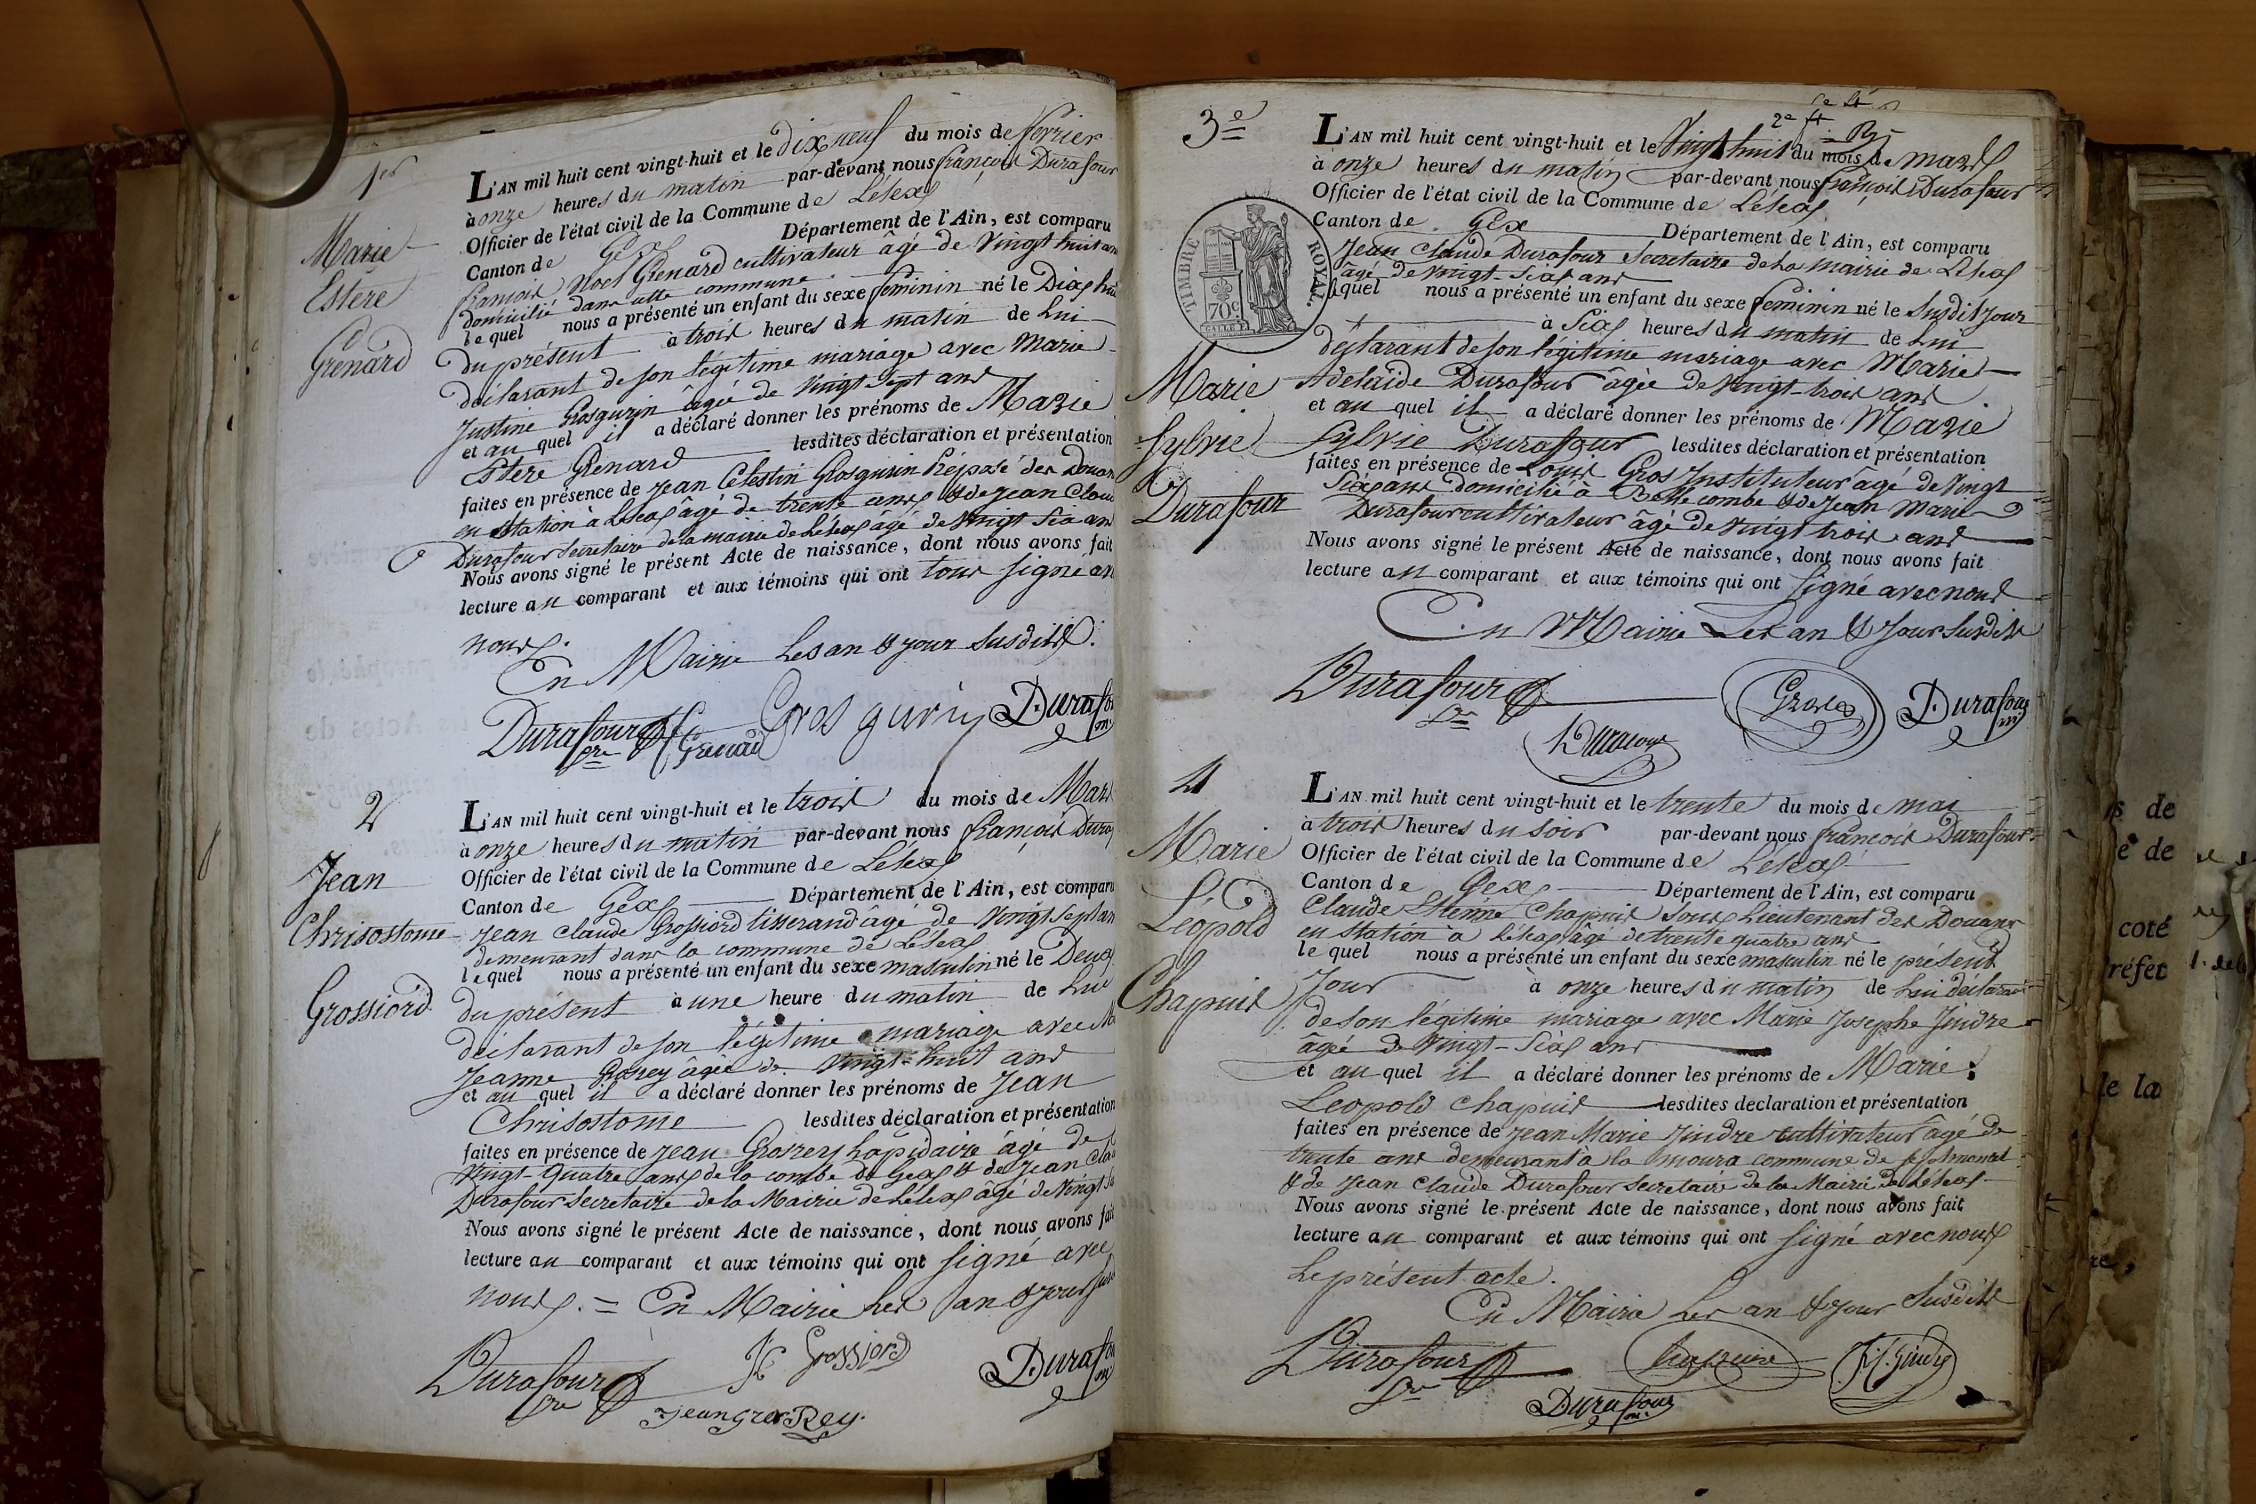 1er
Marie
Estere
Grenard
L'AN mil huit cent vingt-huit et le dix neuf du mois de fevrier
à onze heures du matin par-devant nous françois Durafour
Officier de l'état civil de la Commune de Léleax
Canton de Gex Département de l'Ain, est comparu
françois Noel Grenard cultivateur âgé de vingt huit ans
domicilié dans cette commune
le quel nous a présenté un enfant du sexe feminin né le Dix hui
du présent à trois heures du matin de lui
déclarant de son légitime mariage avec Marie
Justine Grosgurin âgée de vingt sept ans
et au quel il a déclaré donner les prénoms de Marie
Estere Grenard lesdites déclaration et présentation
faites en présence de jean Célestin Grosgurin Préposé des Douan
en station à Léleax âgé de trente cinq & de jean Clau
Durafour secretaire de la mairie de Léleax âgé de vingt six an
Nous avons signé le présent Acte de naissance, dont nous avons fait
lecture au comparant et aux témoins qui ont tous signé av
nous.
En Mairie Les an & jour susdits.
Durafour sre Grenard Gros gurin Durafour
2
Jean
Chrisostome
Grossiord
L'AN mil huit cent vingt-huit et le trois du mois de Mars
à onze heures du matin par-devant nous françois Duraf
Officier de l'état civil de la Commune de Léleax
Canton de Gex Département de l'Ain, est comparu
jean claude Grossiord tisserand âgé de vingt sept an
demeurant dans la commune de Léleax
le quel nous a présenté un enfant du sexe masculin né le Deux
du présent à une heure du matin de lui
déclarant de son légitime mariage avec Ma
Jeanne Grosrey âgée de vingt-huit ans
et au quel il a déclaré donner les prénoms de Jean
Chrisostome lesdites déclaration et présentation
faites en présence de jean Grosrey Lapidaire âgé de
vingt-quatre ans de la combe de Gex & de jean Clau
Durafour secretaire de la Mairie de Léleax âgé de vingt
Nous avons signé le présent Acte de naissance, dont nous avons fait
lecture au comparant et aux témoins qui ont signé avec
nous. = En Mairie Les an & jour sus
Durafour sre Grossiord Durafour
jean gros Rey.
3e
Marie
Sylvie
Durafour
TIMBRE ROYAL.
70c
L'AN mil huit cent vingt-huit et le vingt huit du mois de mars
à onze heures du matin par-devant nous françois Durafour
Officier de l'état civil de la Commune de Léleax
Canton de Gex Département de l'Ain, est comparu
Jean Claude Durafour Secretaire de la mairie de Léleax
âgé de vingt six ans
lequel nous a présenté un enfant du sexe feminin né le susdit jour
à six heures du matin de lui
déclarant de son légitime mariage avec Marie
Adelaïde Durafour âgée de vingt-trois ans
et au quel il a déclaré donner les prénoms de Marie
Sylvie Durafour lesdites déclaration et présentation
faites en présence de Louis Gros Instituteur âgé de vingt
six ans domicilié à Belle combe & de jean Marie
Durafour cultivateur âgé de vingt trois ans
Nous avons signé le présent Acte de naissance, dont nous avons fait
lecture au comparant et aux témoins qui ont signé avec nous
En Mairie Les an & jour susdits
Durafour sre Gros Durafour
Durafour
4
Marie
Léopold
Chapuis
L'AN mil huit cent vingt-huit et le trente du mois de mai
à trois heures du soir par-devant nous françois Durafour
Officier de l'état civil de la Commune de Léleax
Canton de Gex Département de l'Ain, est comparu
Claude Etienne Chapuis sous Lieutenant des Douanes
en station à Léleax âgé de trente quatre ans
le quel nous a présenté un enfant du sexe masculin né le présent
Jour à onze heures du matin de lui déclarant
de son légitime mariage avec Marie Josephe Jindre
âgée de vingt-six ans
et au quel il a déclaré donner les prénoms de Marie
Leopold Chapuis lesdites declaration et présentation
faites en présence de jean Marie Jindre cultivateur âgé de
trente ans demeurant à la moura commune de
& de jean claude Durafour secretaire de la Mairie de Léleax
Nous avons signé le présent Acte de naissance, dont nous avons fait
lecture au comparant et aux témoins qui ont signé avec nous
le présent acte.
En Mairie Les an & jour susdits
Durafour sre Chapuis
Durafour
s de
é de
coté
réfet
de la